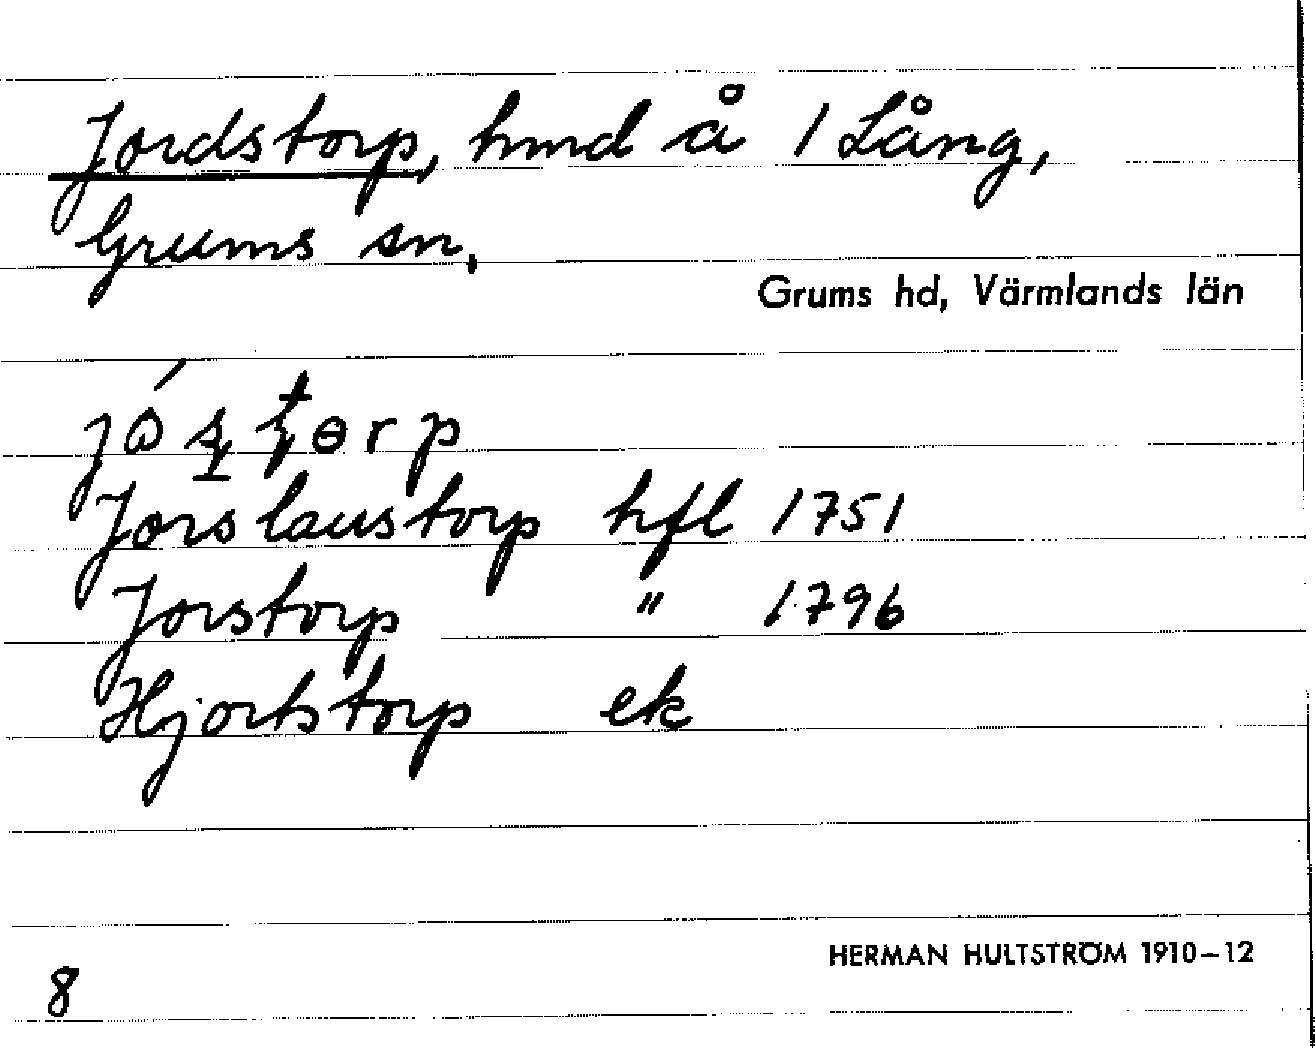 Jordstorp, hmd å 1 Lång,
Grums sn,
Grums hd, Värmlands län
Jorslaustorp hfl 1751
Jorstorp " 1796
Hjortstorp ek
HERMAN HULTSTRÖM 1910–12
8